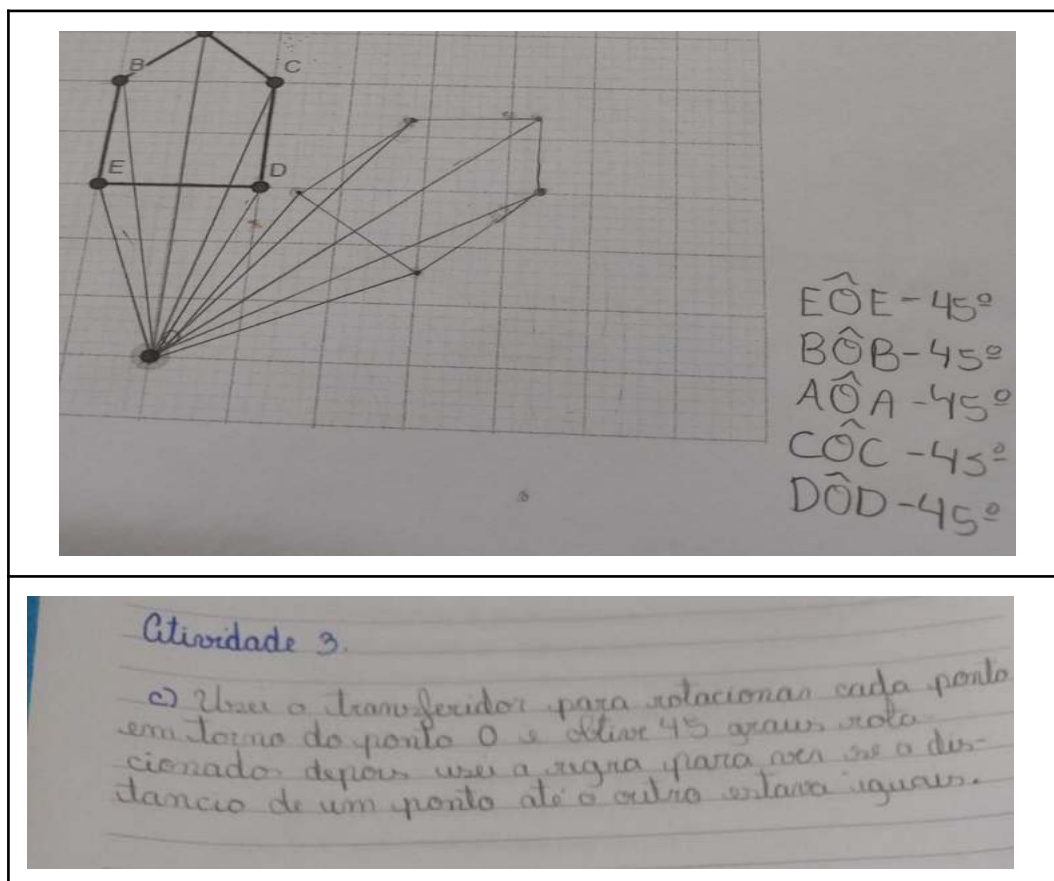 B
C
E
D
EÔE - 45º
BÔB - 45º
AÔA - 45º
CÔC - 45º
DÔD - 45º
Atividade 3.
c) Usei o transferidor para rotacionar cada ponto
em torno do ponto O e obtive 45 graus rota-
cionado depois usei a régua para ver se a dis-
tancia de um ponto até o outro estava iguais.